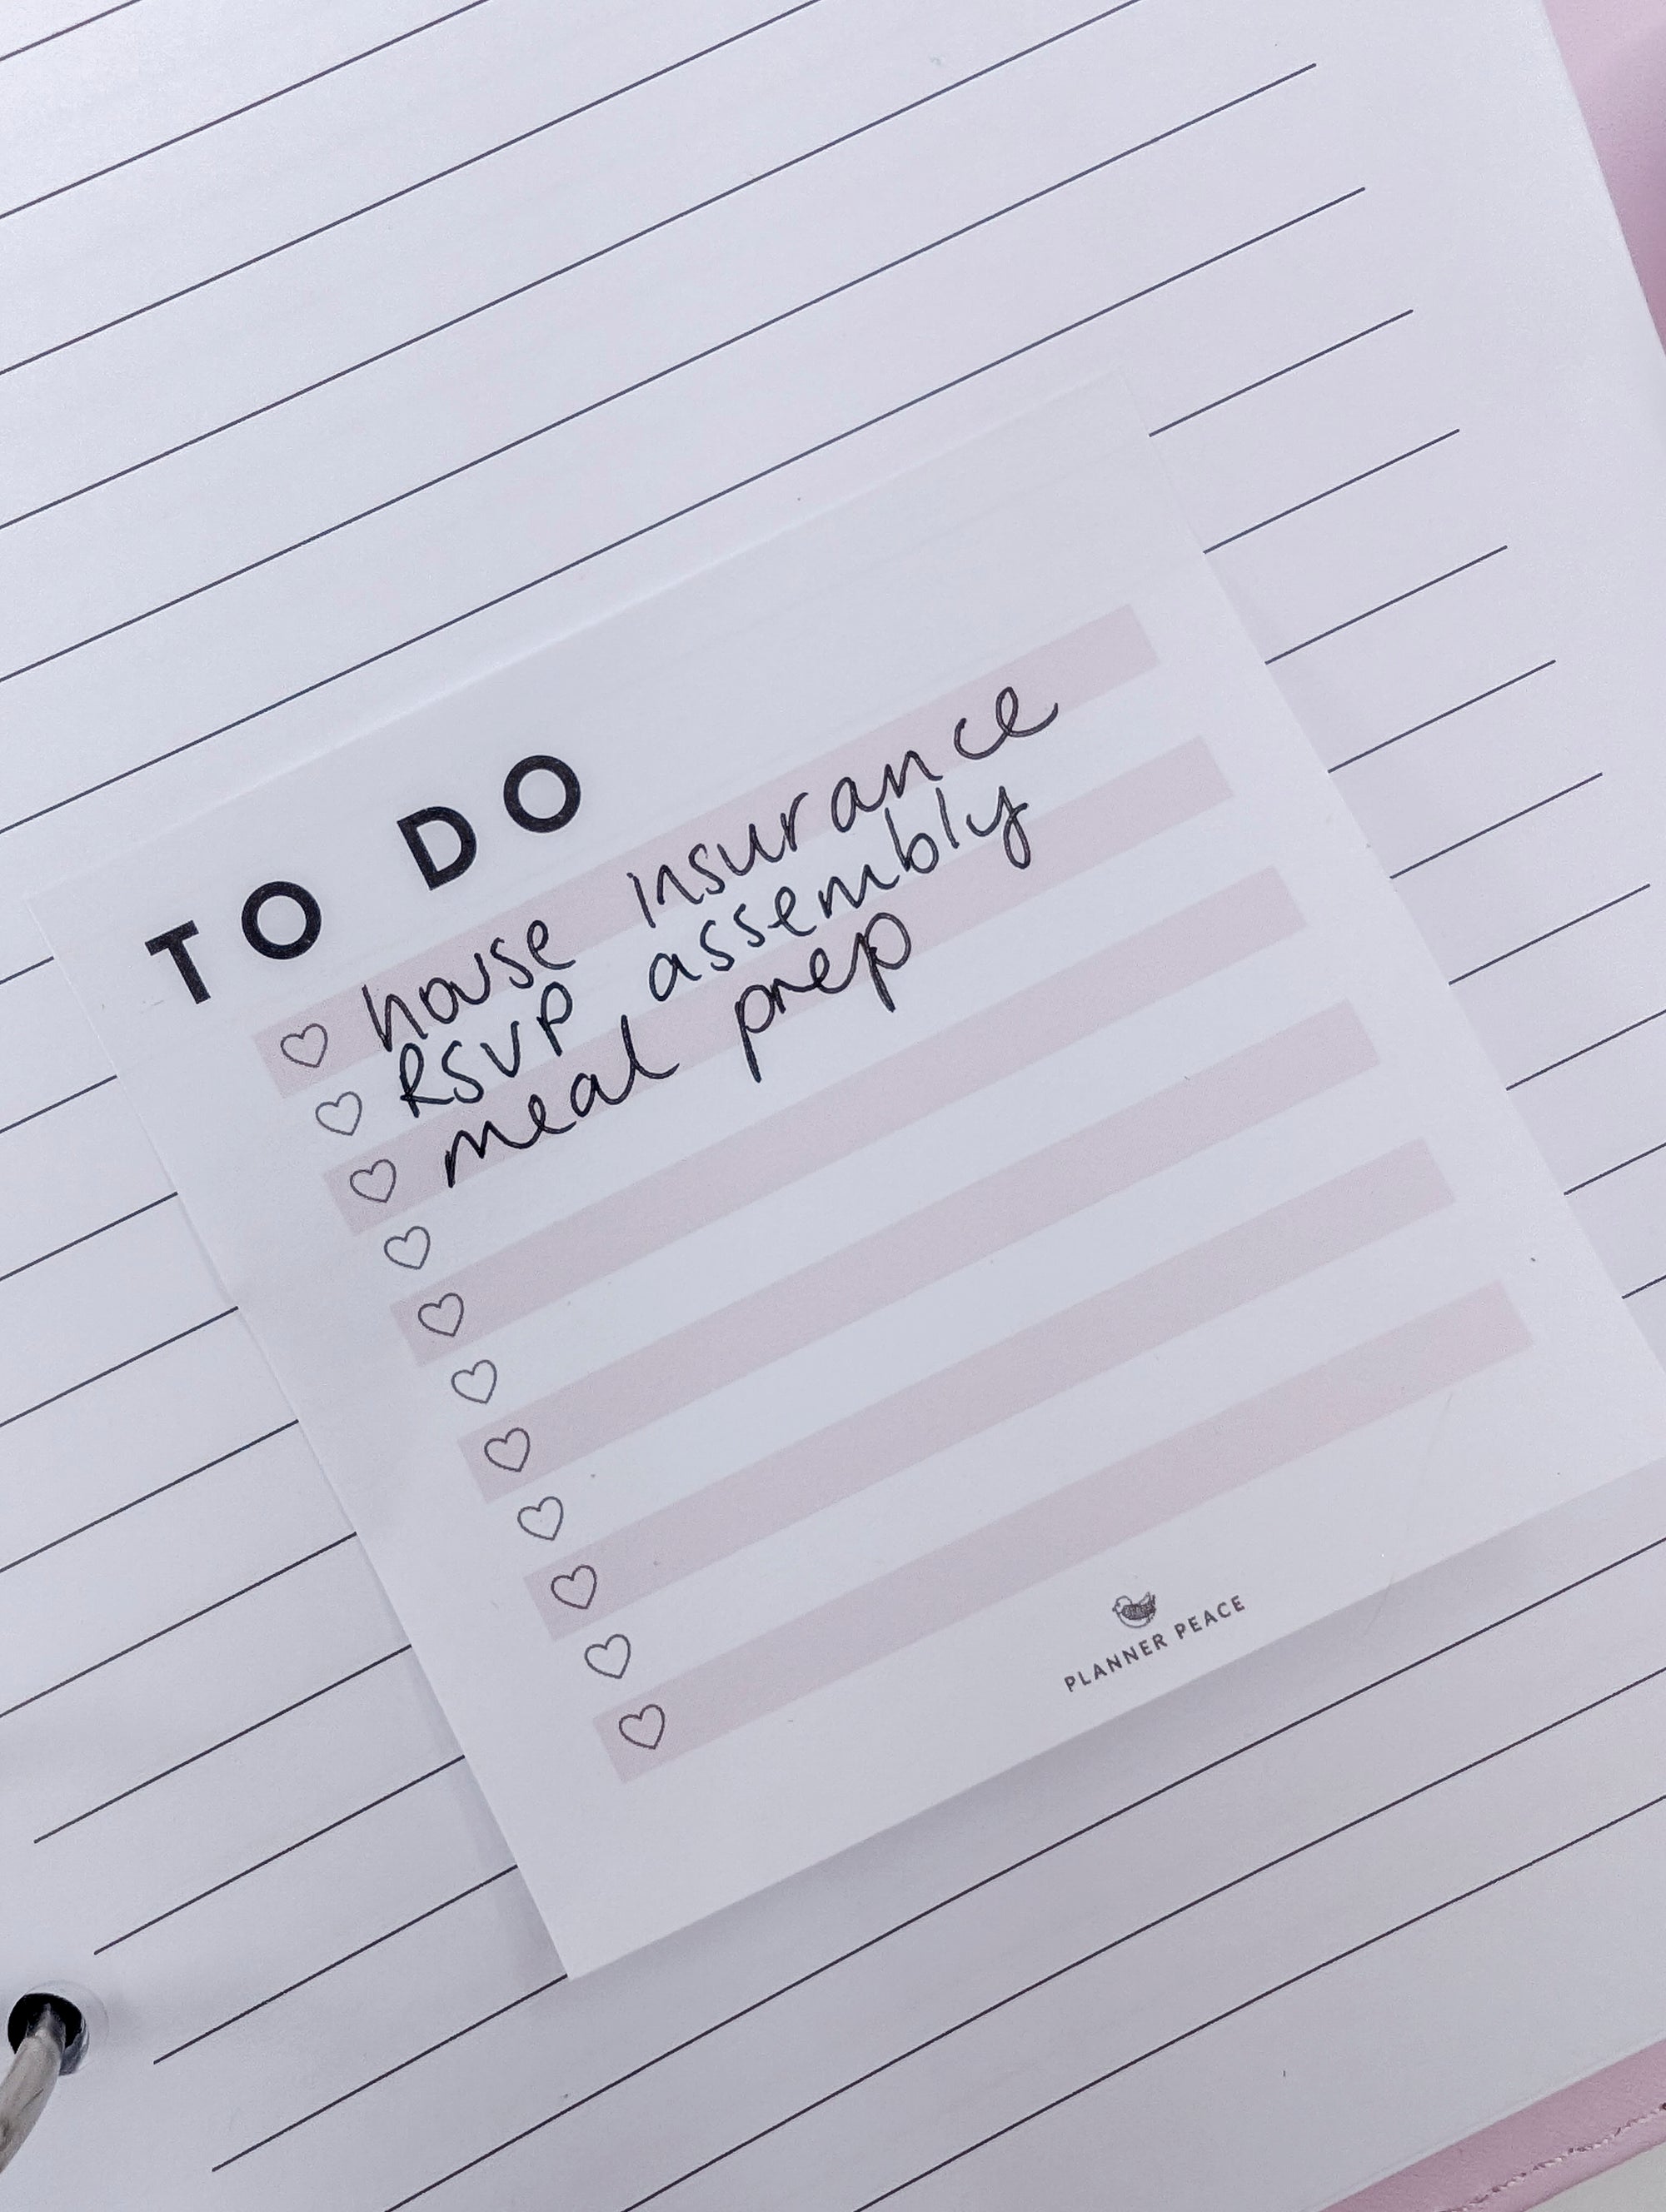 TO DO
house insurance
RSVP assembly
meal prep
PLANNER PEACE